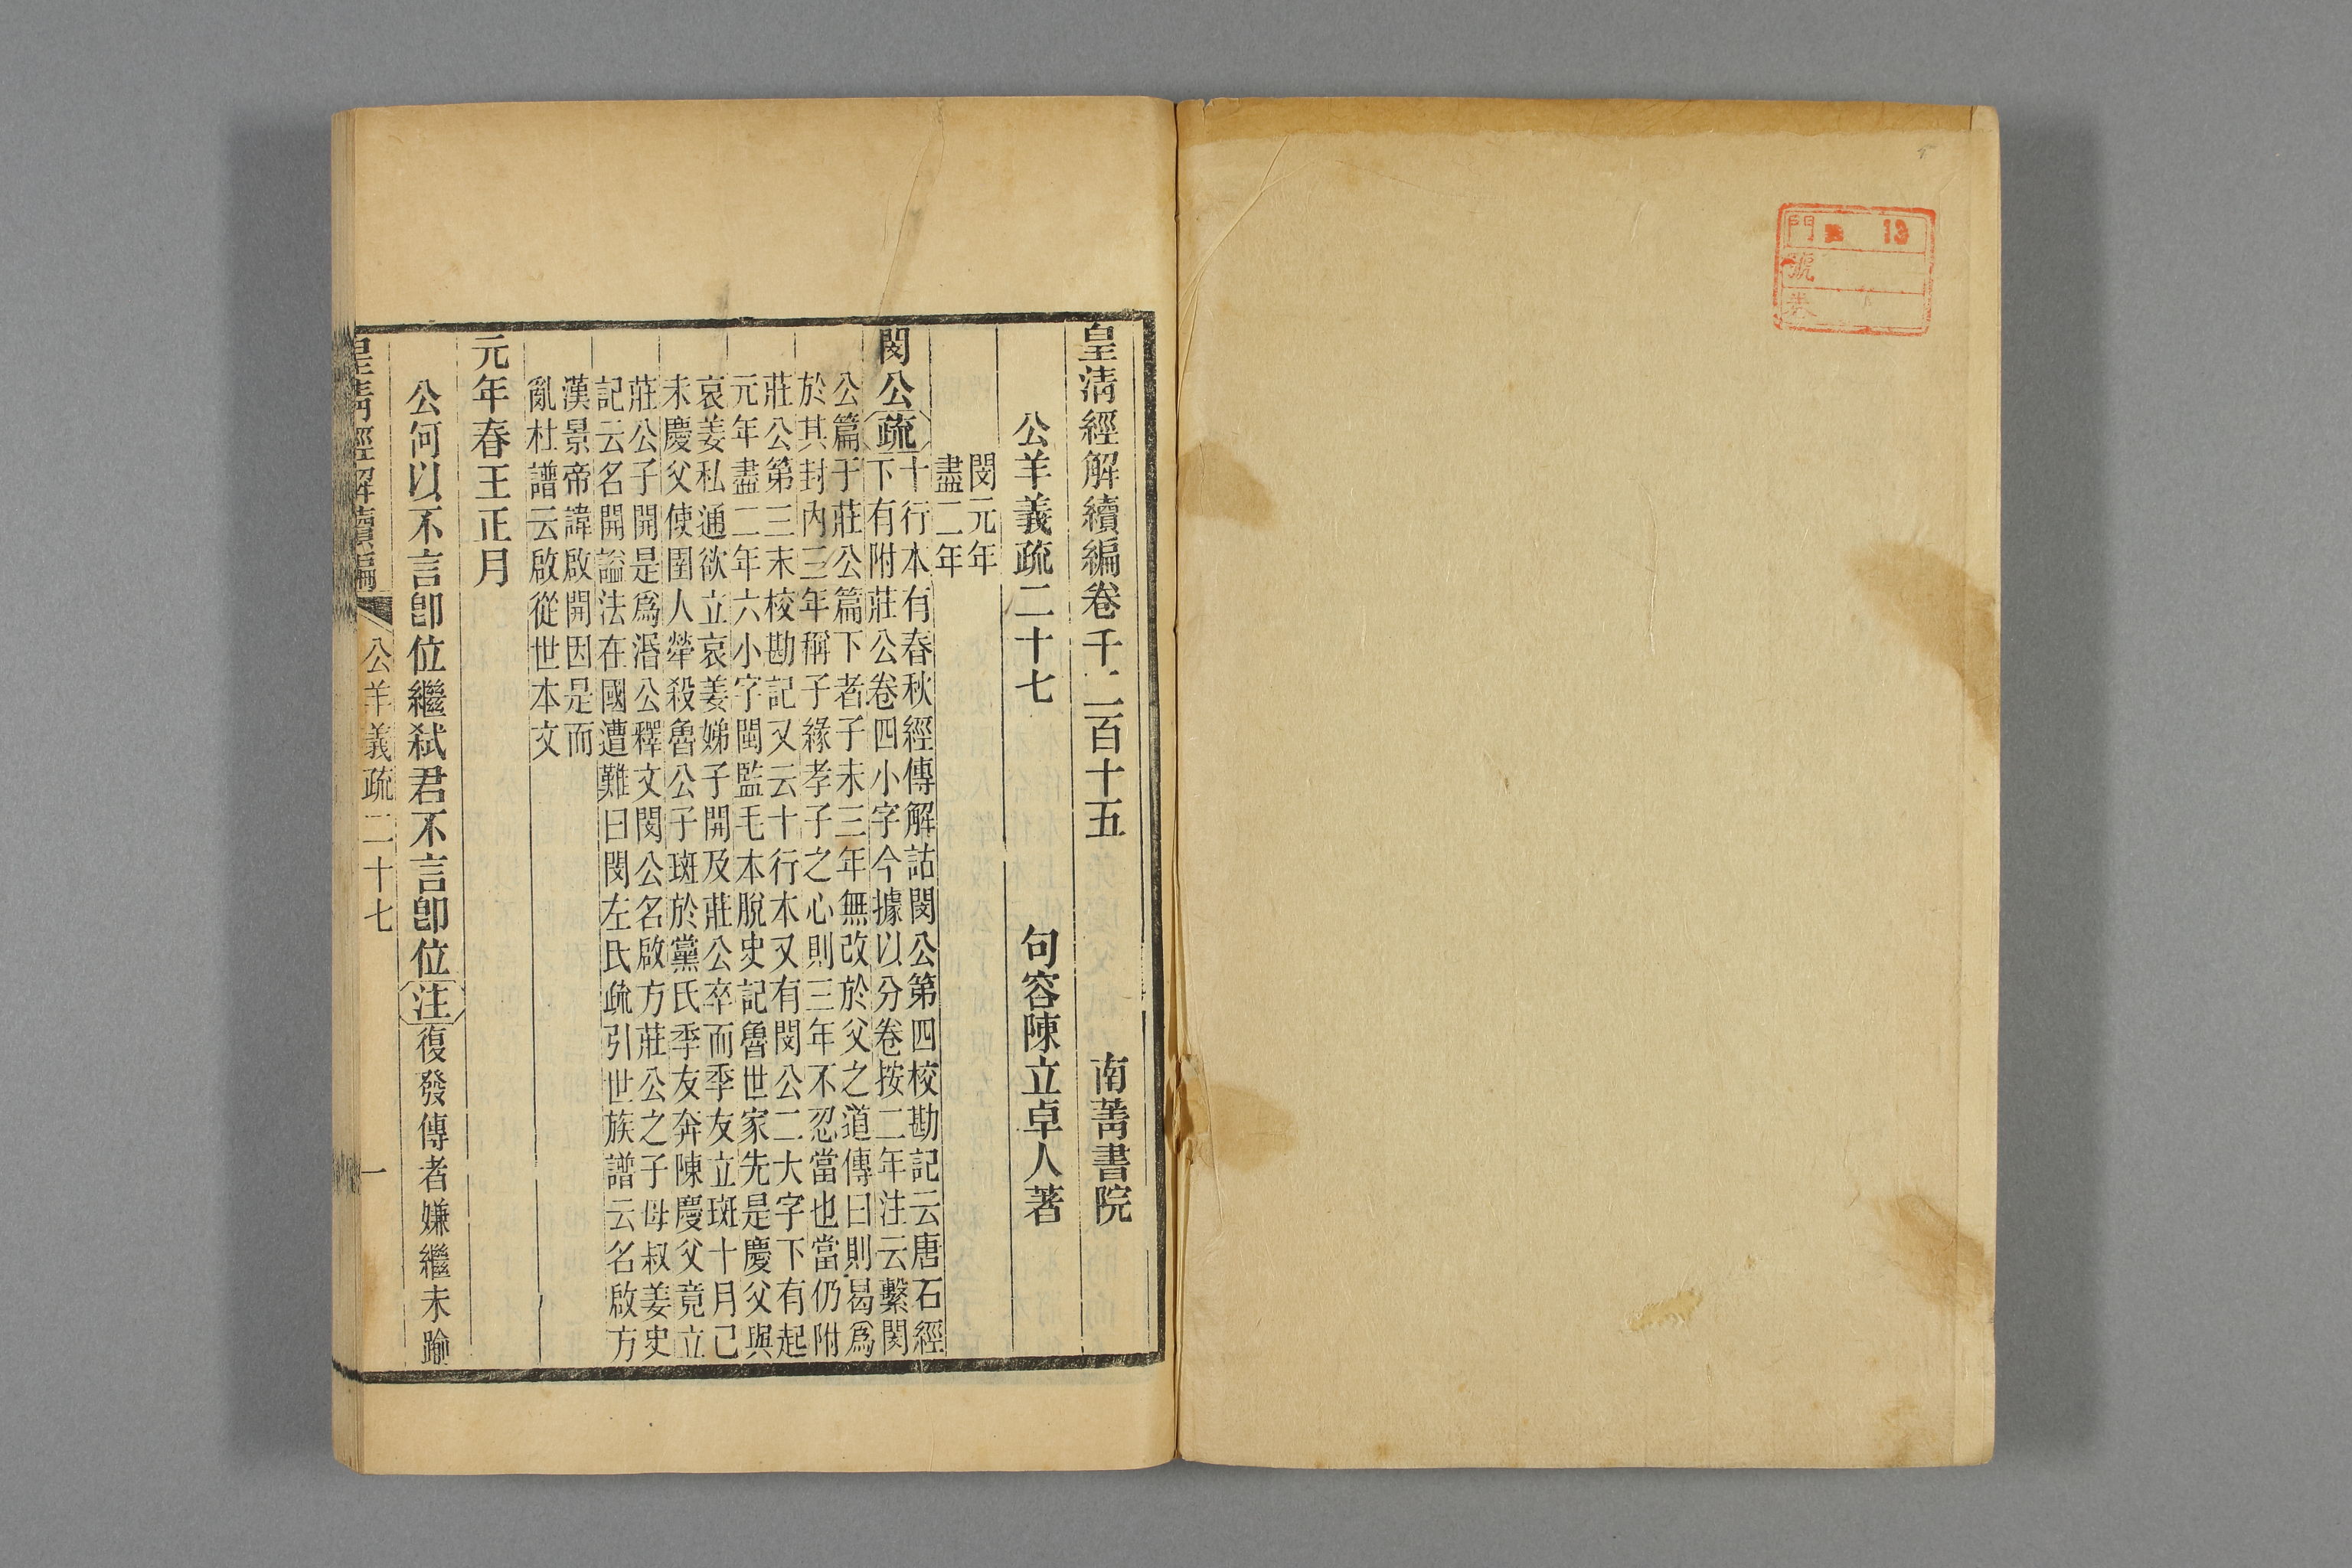 門 13
號
卷
皇清經解續編卷千二百十五 南菁書院
公羊義疏二十七 句容陳立卓人著
閔元年
盡二年
閔公疏十行本有春秋經傳解詁閔公第四校勘記云唐石經
下有附莊公卷四小字今據以分卷按二年注云繫閔
公篇于莊公篇下者子未三年無改於父之道傳曰則曷爲
於其封內三年稱子緣孝子之心則三年不忍當也當仍附
莊公第三末校勘記又云十行本又有閔公二大字下有起
元年盡二年六小字閩監毛本脫史記魯世家先是慶父與
哀姜私通欲立哀姜娣子開及莊公卒而季友立斑十月己
未慶父使圉人犖殺魯公子斑於黨氏季友奔陳慶父竟立
莊公子開是爲湣公釋文閔公名啟方莊公之子母叔姜史
記云名開謚法在國遭難曰閔左氏疏引世族譜云名啟方
漢景帝諱啟開因是而
亂杜譜云啟從世本文
元年春王正月
公何以不言卽位繼弑君不言卽位注復發傳者嫌繼未踰
皇清經解續編 公羊義疏二十七 一